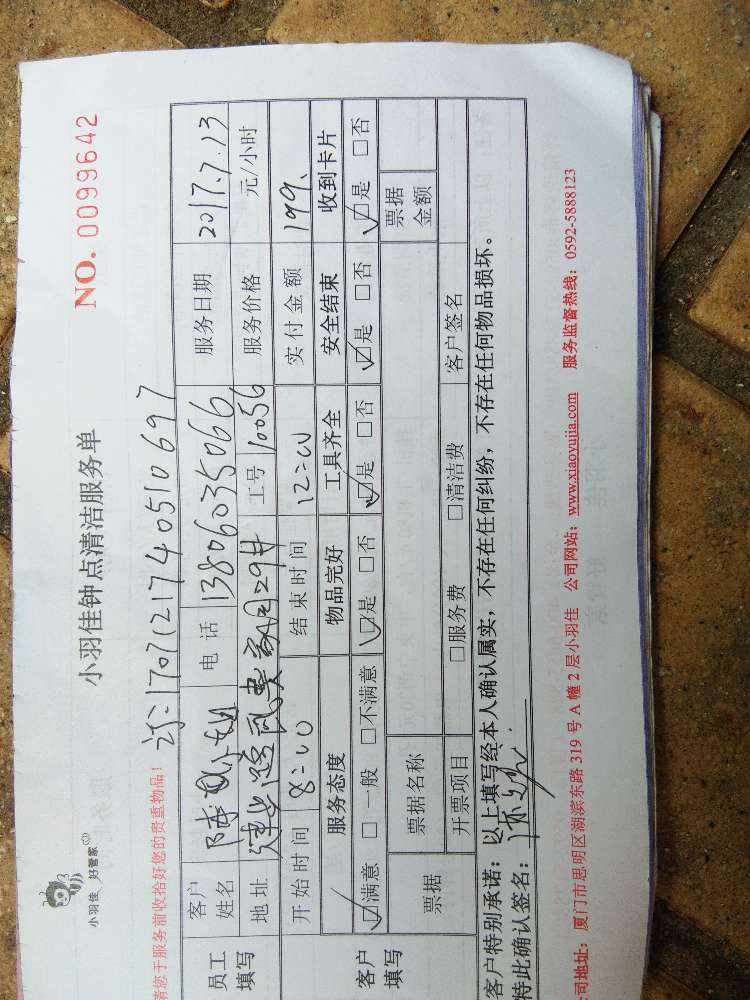 小羽佳 好管家
小羽佳钟点清洁服务单
NO. 0099642
1707121740510697
请您于服务前收拾好您的贵重物品!
员工填写 客户姓名 陈 小姐 电话 13806035066 服务日期 2017.7.13
地址 29# 工号 10056 服务价格 元/小时
开始时间 8:00 结束时间 12:00 实付金额 199.
客户填写 服务态度 物品完好 工具齐全 安全结束 收到卡片
☑满意 □一般 □不满意 ☑是 □否 ☑是 □否 ☑是 □否 ☑是 □否
票据 票据名称 票据金额
开票项目 □服务费 □清洁费 客户签名
客户特别承诺:以上填写经本人确认属实,不存在任何纠纷,不存在任何物品损坏。
特此确认签名:
公司地址:厦门市思明区湖滨东路 319 号 A 幢 2 层小羽佳 公司网站:www.xiaoyujia.com 服务监督热线:0592-5888123